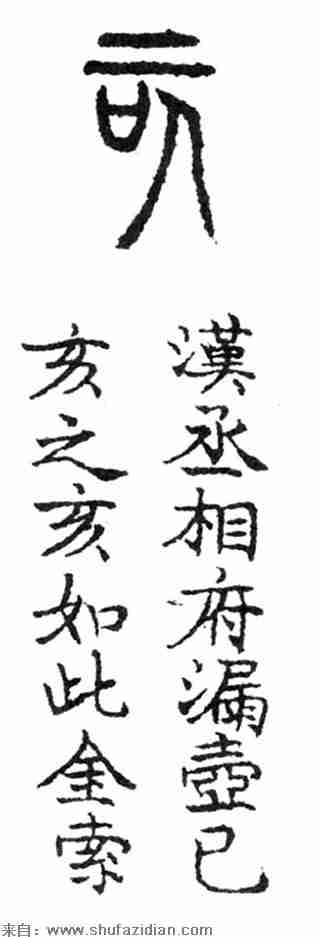 亥
漢丞相府漏壺已
亥之亥如此金索
来自：www.shufazidian.com